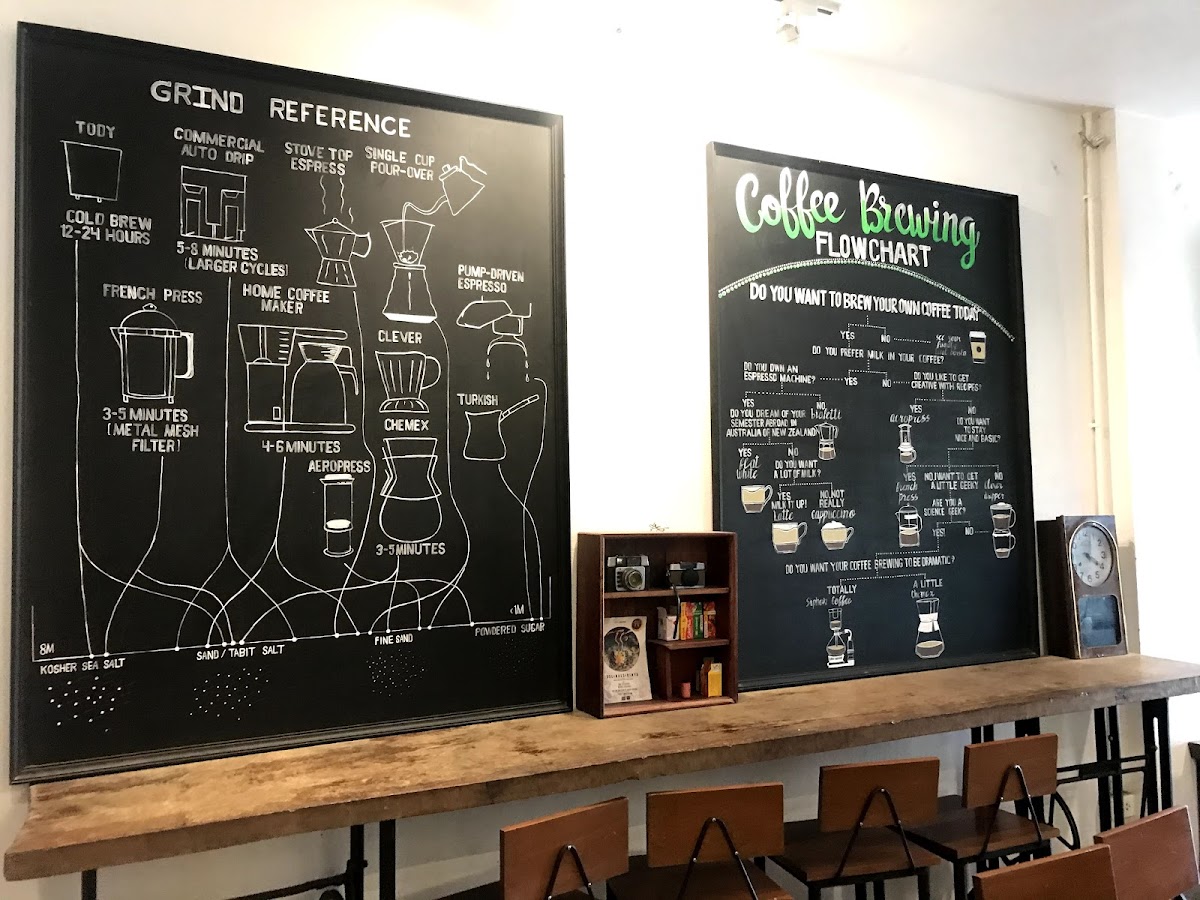 GRIND REFERENCE
TODY
COLD BREW
12-24 HOURS
COMMERCIAL
AUTO DRIP
5-8 MINUTES
(LARGER CYCLES)
STOVE TOP
ESPRESS
SINGLE CUP
POUR-OVER
FRENCH PRESS
3-5 MINUTES
(METAL MESH
FILTER)
HOME COFFEE
MAKER
4-6 MINUTES
CLEVER
CHEMEX
3-5 MINUTES
AEROPRESS
PUMP-DRIVEN
ESPRESSO
TURKISH
8M
KOSHER SEA SALT
SAND/TABIT SALT
FINE SAND
<1M
POWDERED SUGAR
Coffee Brewing
FLOWCHART
DO YOU WANT TO BREW YOUR OWN COFFEE TODAY
YES
NO
see your
DO YOU PREFER MILK IN YOUR COFFEE?
YES
NO
DO YOU OWN AN
ESPRESSO MACHINE?
YES
NO
DO YOU DREAM OF YOUR
SEMESTER ABROAD IN
AUSTRALIA OF NEW ZEALAND
YES
flat
white
NO
DO YOU WANT
A LOT OF MILK?
YES
MILK IT UP!
latte
NO, NOT
REALLY
cappuccino
DO YOU LIKE TO GET
CREATIVE WITH RECIPES?
YES
aeropress
NO
DO YOU WANT
TO STAY
NICE AND BASIC?
YES
french
press
NO, I WANT TO GET
A LITTLE GEEKY
NO
clever
dripper
ARE YOU A
SCIENCE GEEK?
YES!
NO
DO YOU WANT YOUR COFFEE BREWING TO BE DRAMATIC?
TOTALLY
Siphon Coffee
A LITTLE
Chemex